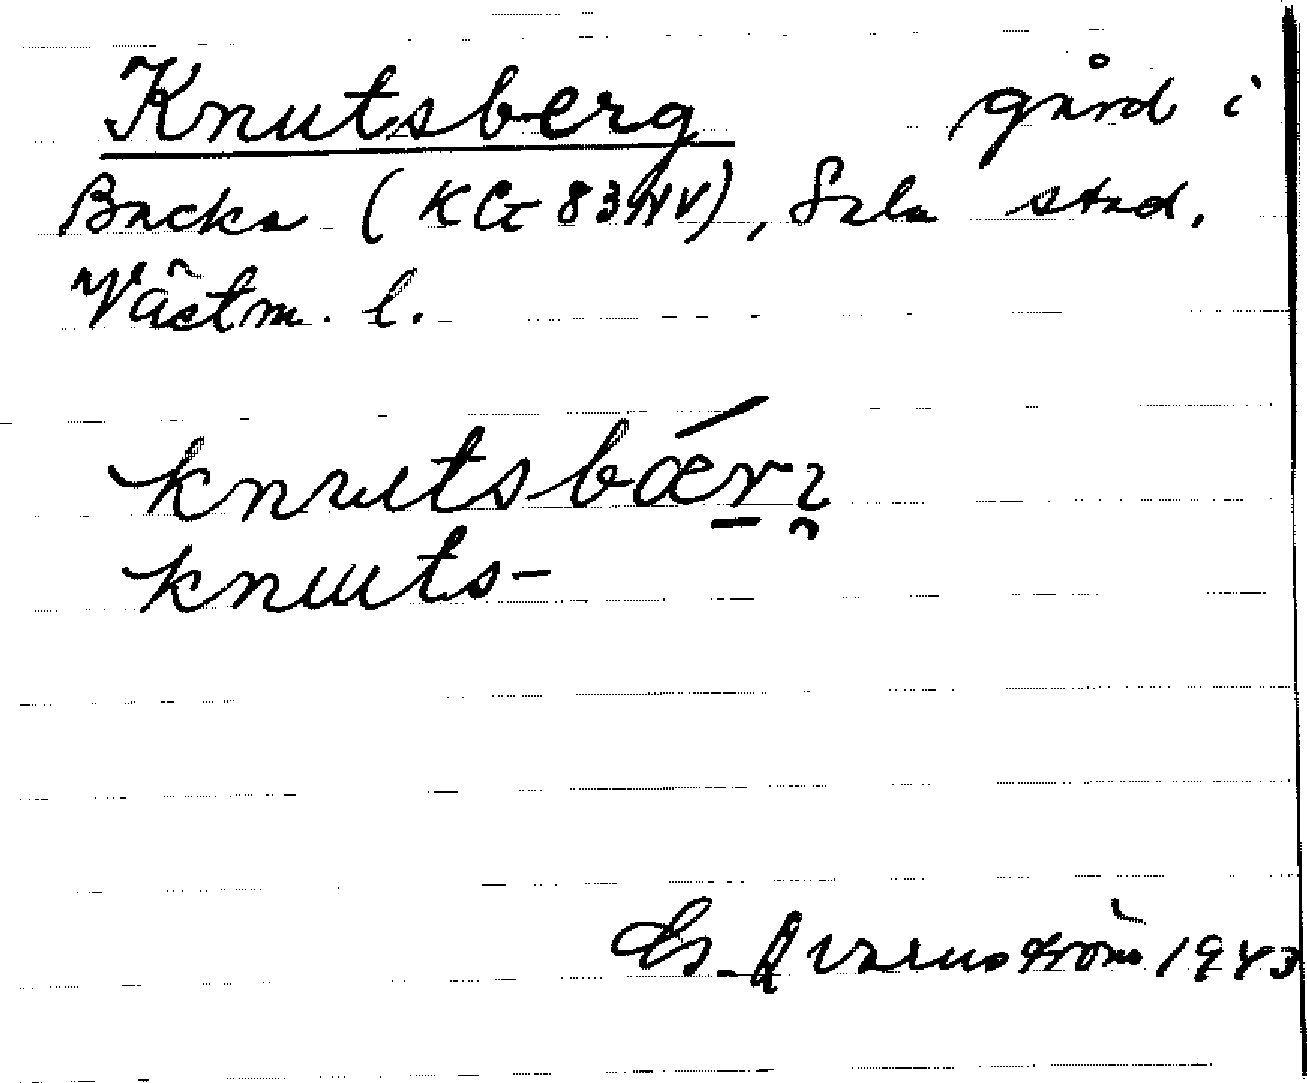 Knutsberg gård i
Backa (KG 83 NV), Sala stad.
Västm. l.
knutsbǽr̠ı̯
knuts-
Es. Qvarnström 1943